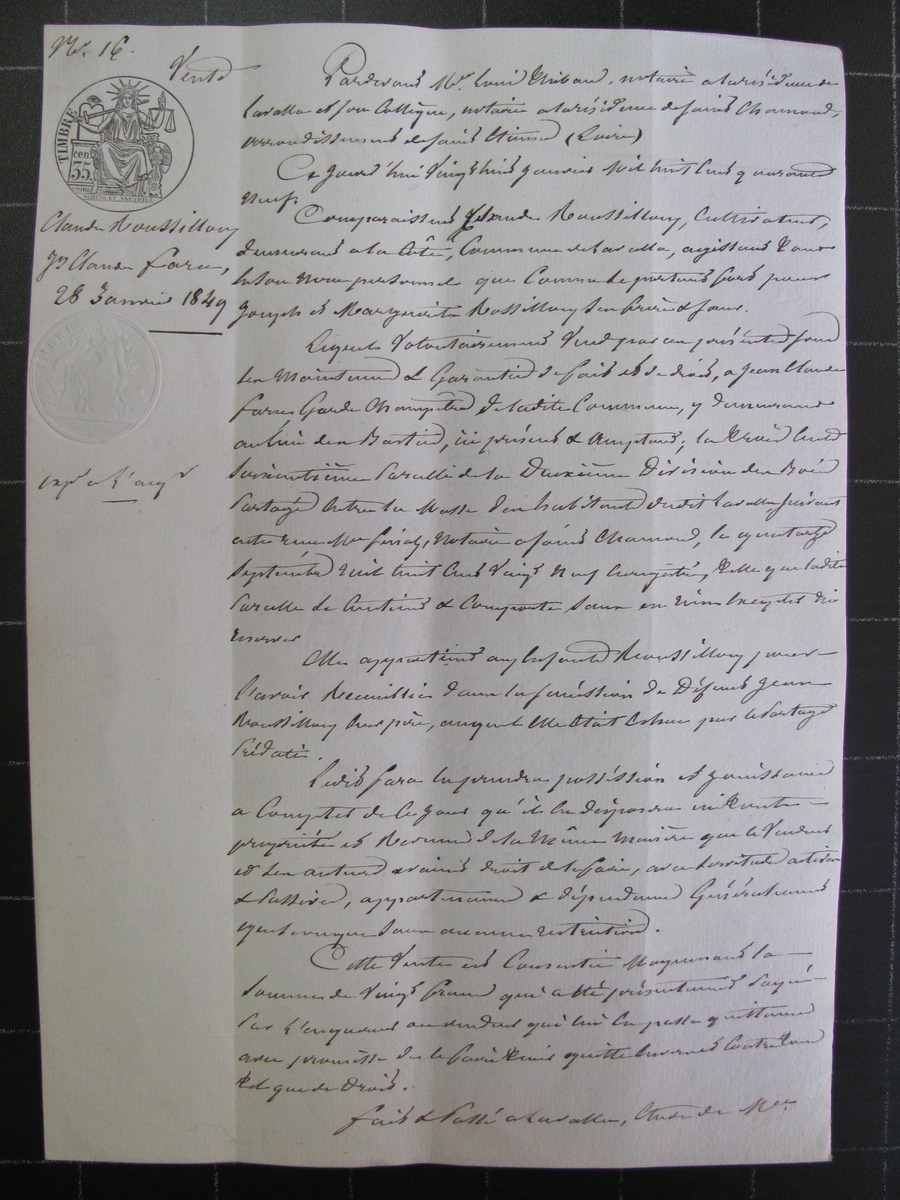 N.º 16.
Vente
TIMBRE
35 cen
Claude Roussillon
Jn Claude Fara,
28 Janvier 1849
exp.n a l'acq.r
Pardevant Me Louis Thibaud, notaire a la résidence de
Lavalla et son Collègue, notaire a la résidence de Saint Chamond,
arrondissement de Saint Etienne (Loire)
Ce jourd'hui Vingt huit janvier Mil huit Cent quarante
Neuf.
Comparaissent Claude Roussillon, Cultivateur,
demeurant a la Côte, Commune de Lavalla, agissant tant
en son nom personnel que Comme se portant fort pour
Joseph et Marguerite Roussillon ses frère & sœur.
Lequel Volontairement Vend par ces présentes sous
les Maintenue & Garantie de fait et de droit, a Jean Claude
Fara Garde Champêtre de ladite Commune, y demeurant
au lieu des, ici présent & acceptant; la Trois Cent
Soixantième Parcelle de la Deuxième Division des Bois
Partagés entre la Masse des habitants dudit Lavalla, suivant
acte reçu Me Finaz, Notaire a Saint Chamond, le quatorze
Septembre Mil huit Cent Vingt Neuf, enregistré, telle que ladite
Parcelle se Contient & Comporte sans en rien excepter ni
réserver
Elle appartient aux enfants Roussillon pour
l'avoir Recueillie dans la succession de Défunt Jean
Roussillon leur père, auquel elle était échue par le Partage
Prédaté.
Ledit Fara en prendra possession et jouissance
a Compter de ce jour qu'il en disposera en toute
propriété et Revenu de la Même Manière que le Vendeur
et ses auteurs avaient droit de le faire, avec servitudes actives
& Passives, appartenances & dépendances Généralement
quelconques sans aucune restriction.
Cette Vente est Consentie Moyennant la
Somme de Vingt francs qui a été présentement Payée
Par l'acquéreur au vendeur qui lui en passe quittance
avec promesse de le faire tenir quitte envers et Contre tous
tel que de Droit.
Fait & Passé a Lavalla, Etude de Me